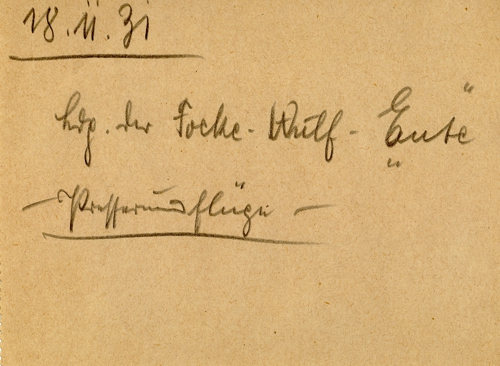 18.11.31
Ldg. der Focke-Wulf-„Ente“
— Presserundflüge —